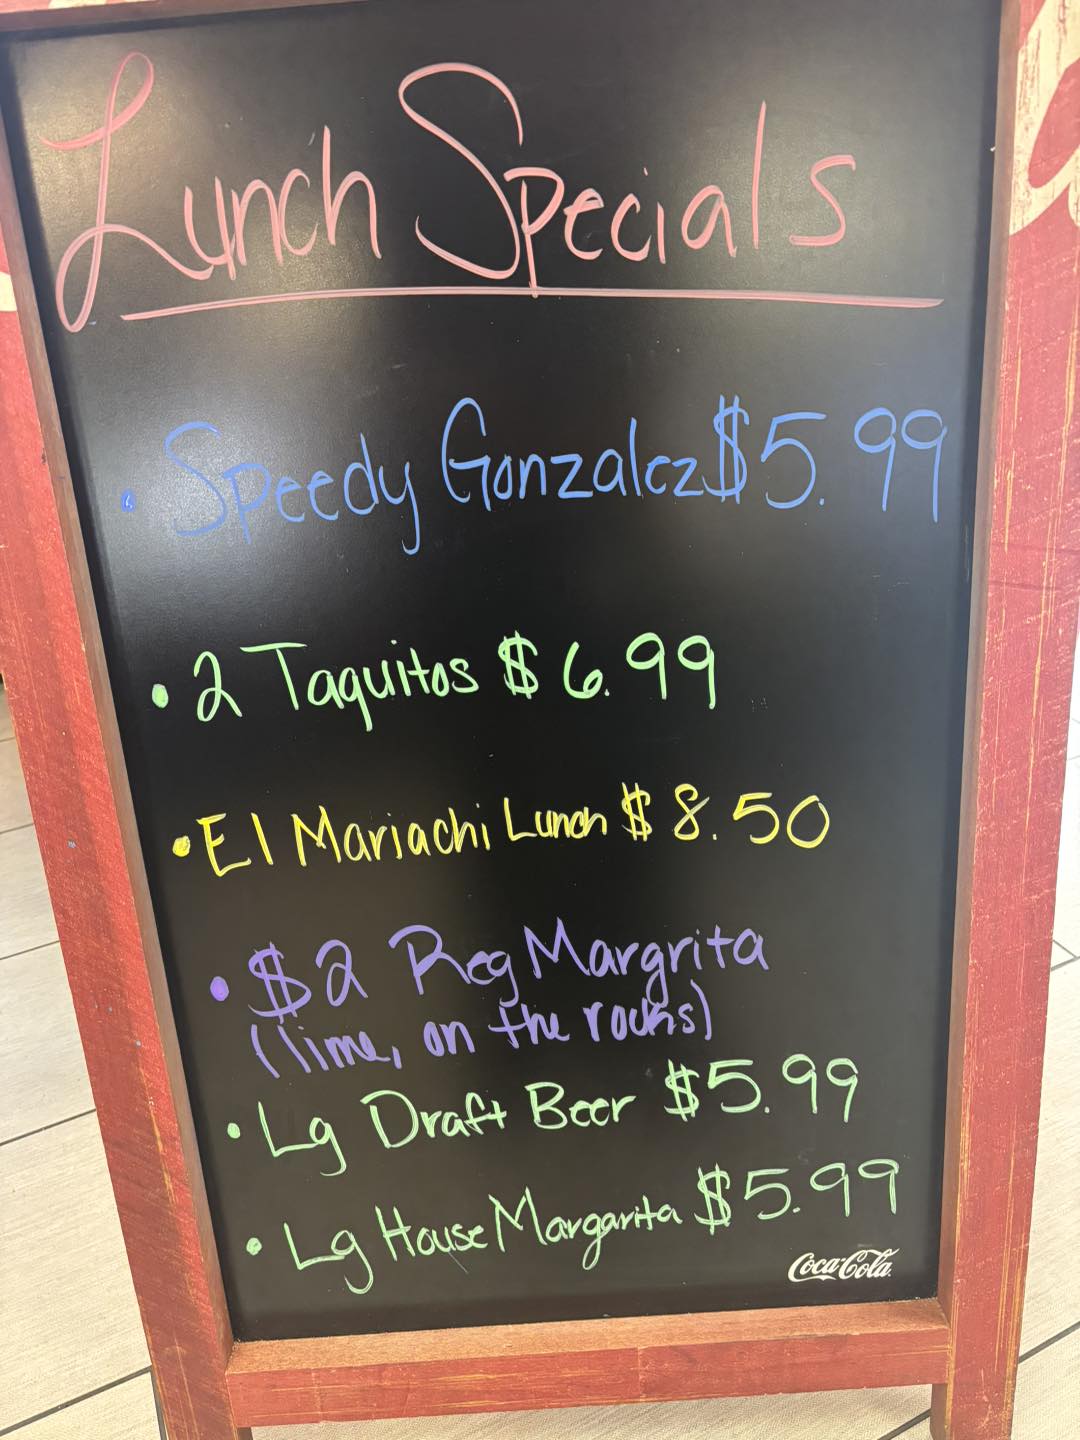 Lunch Specials
• Speedy Gonzalez $5.99
• 2 Taquitos $6.99
• El Mariachi Lunch $8.50
• $2 Reg Margrita
(lime, on the rocks)
• Lg Draft Beer $5.99
• Lg House Margarita $5.99
Coca-Cola